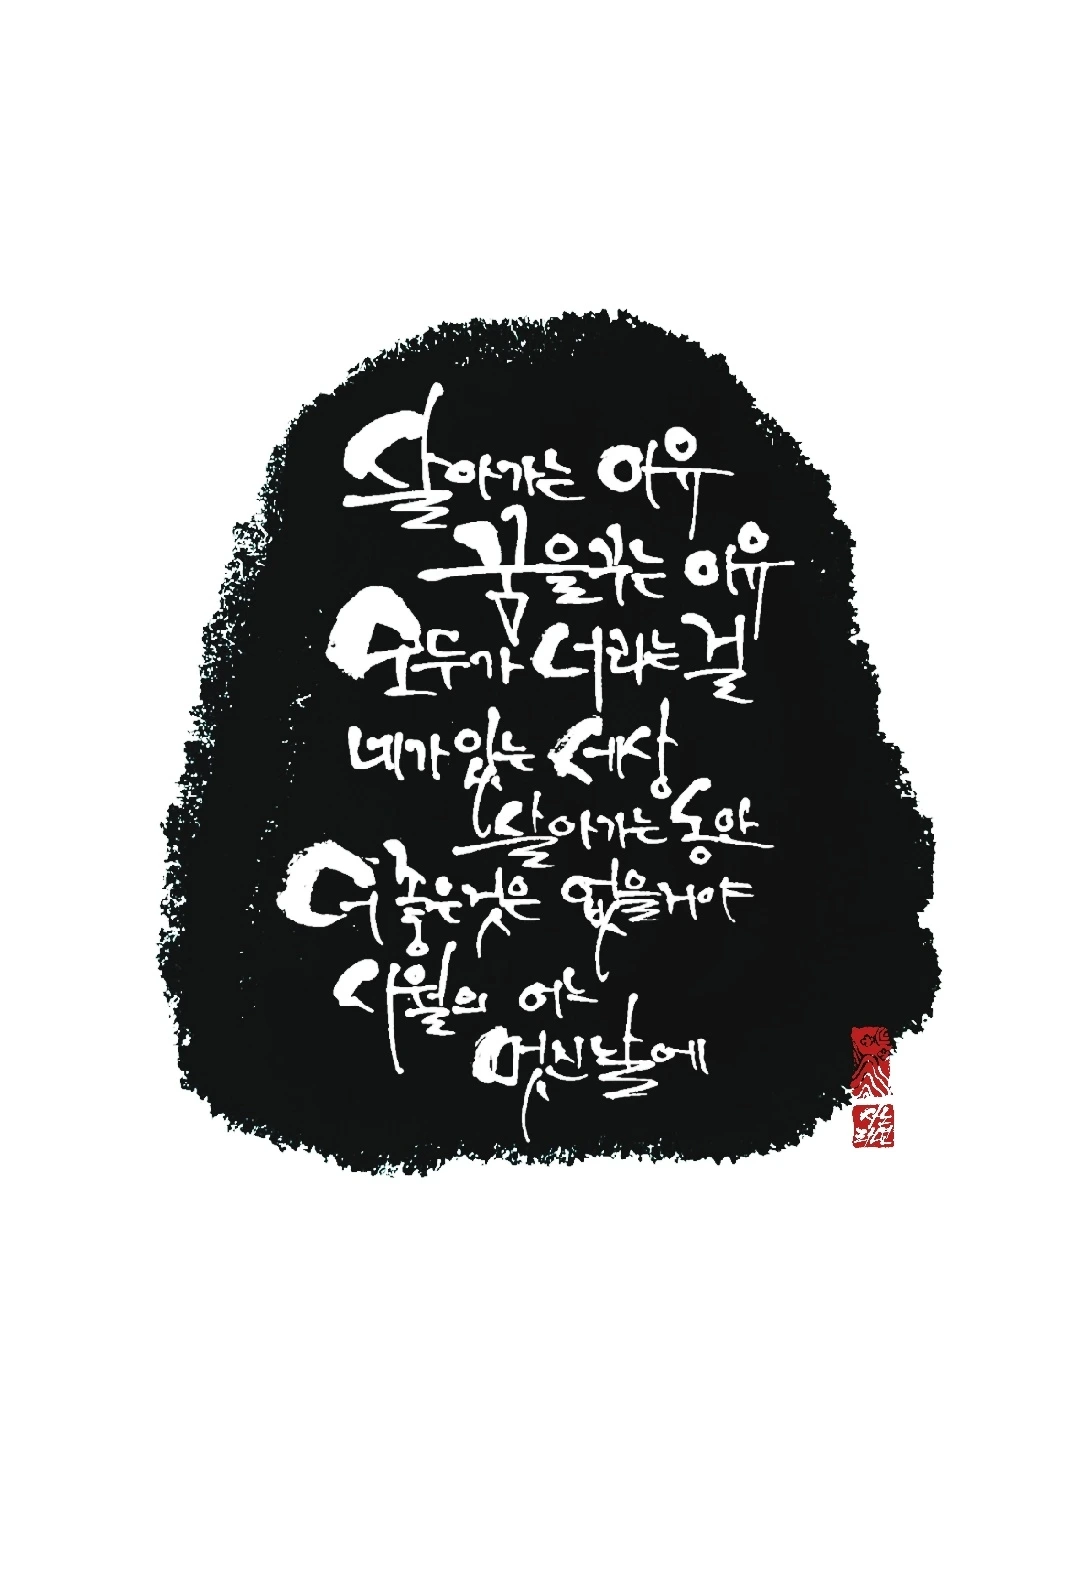 살아가는 이유
꿈을꾸는 이유
모두가 너라는걸
네가있는 세상
살아가는동안
더 좋은것은 없을거야
사월의 어느
멋진날에